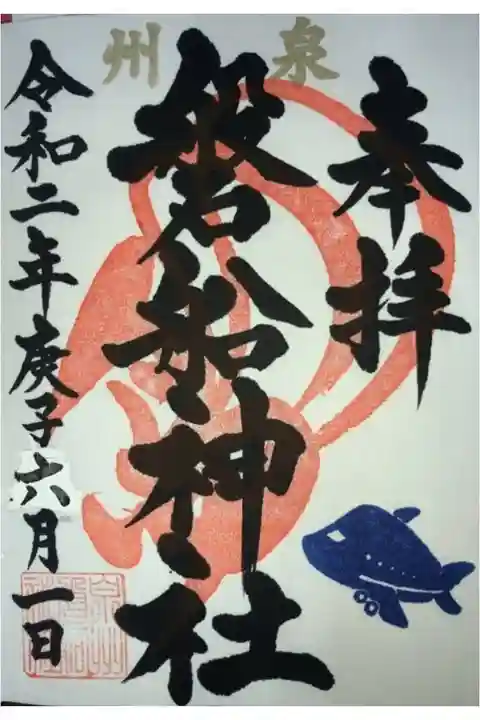 奉拝
泉州
磐船神社
令和二年庚子六月一日